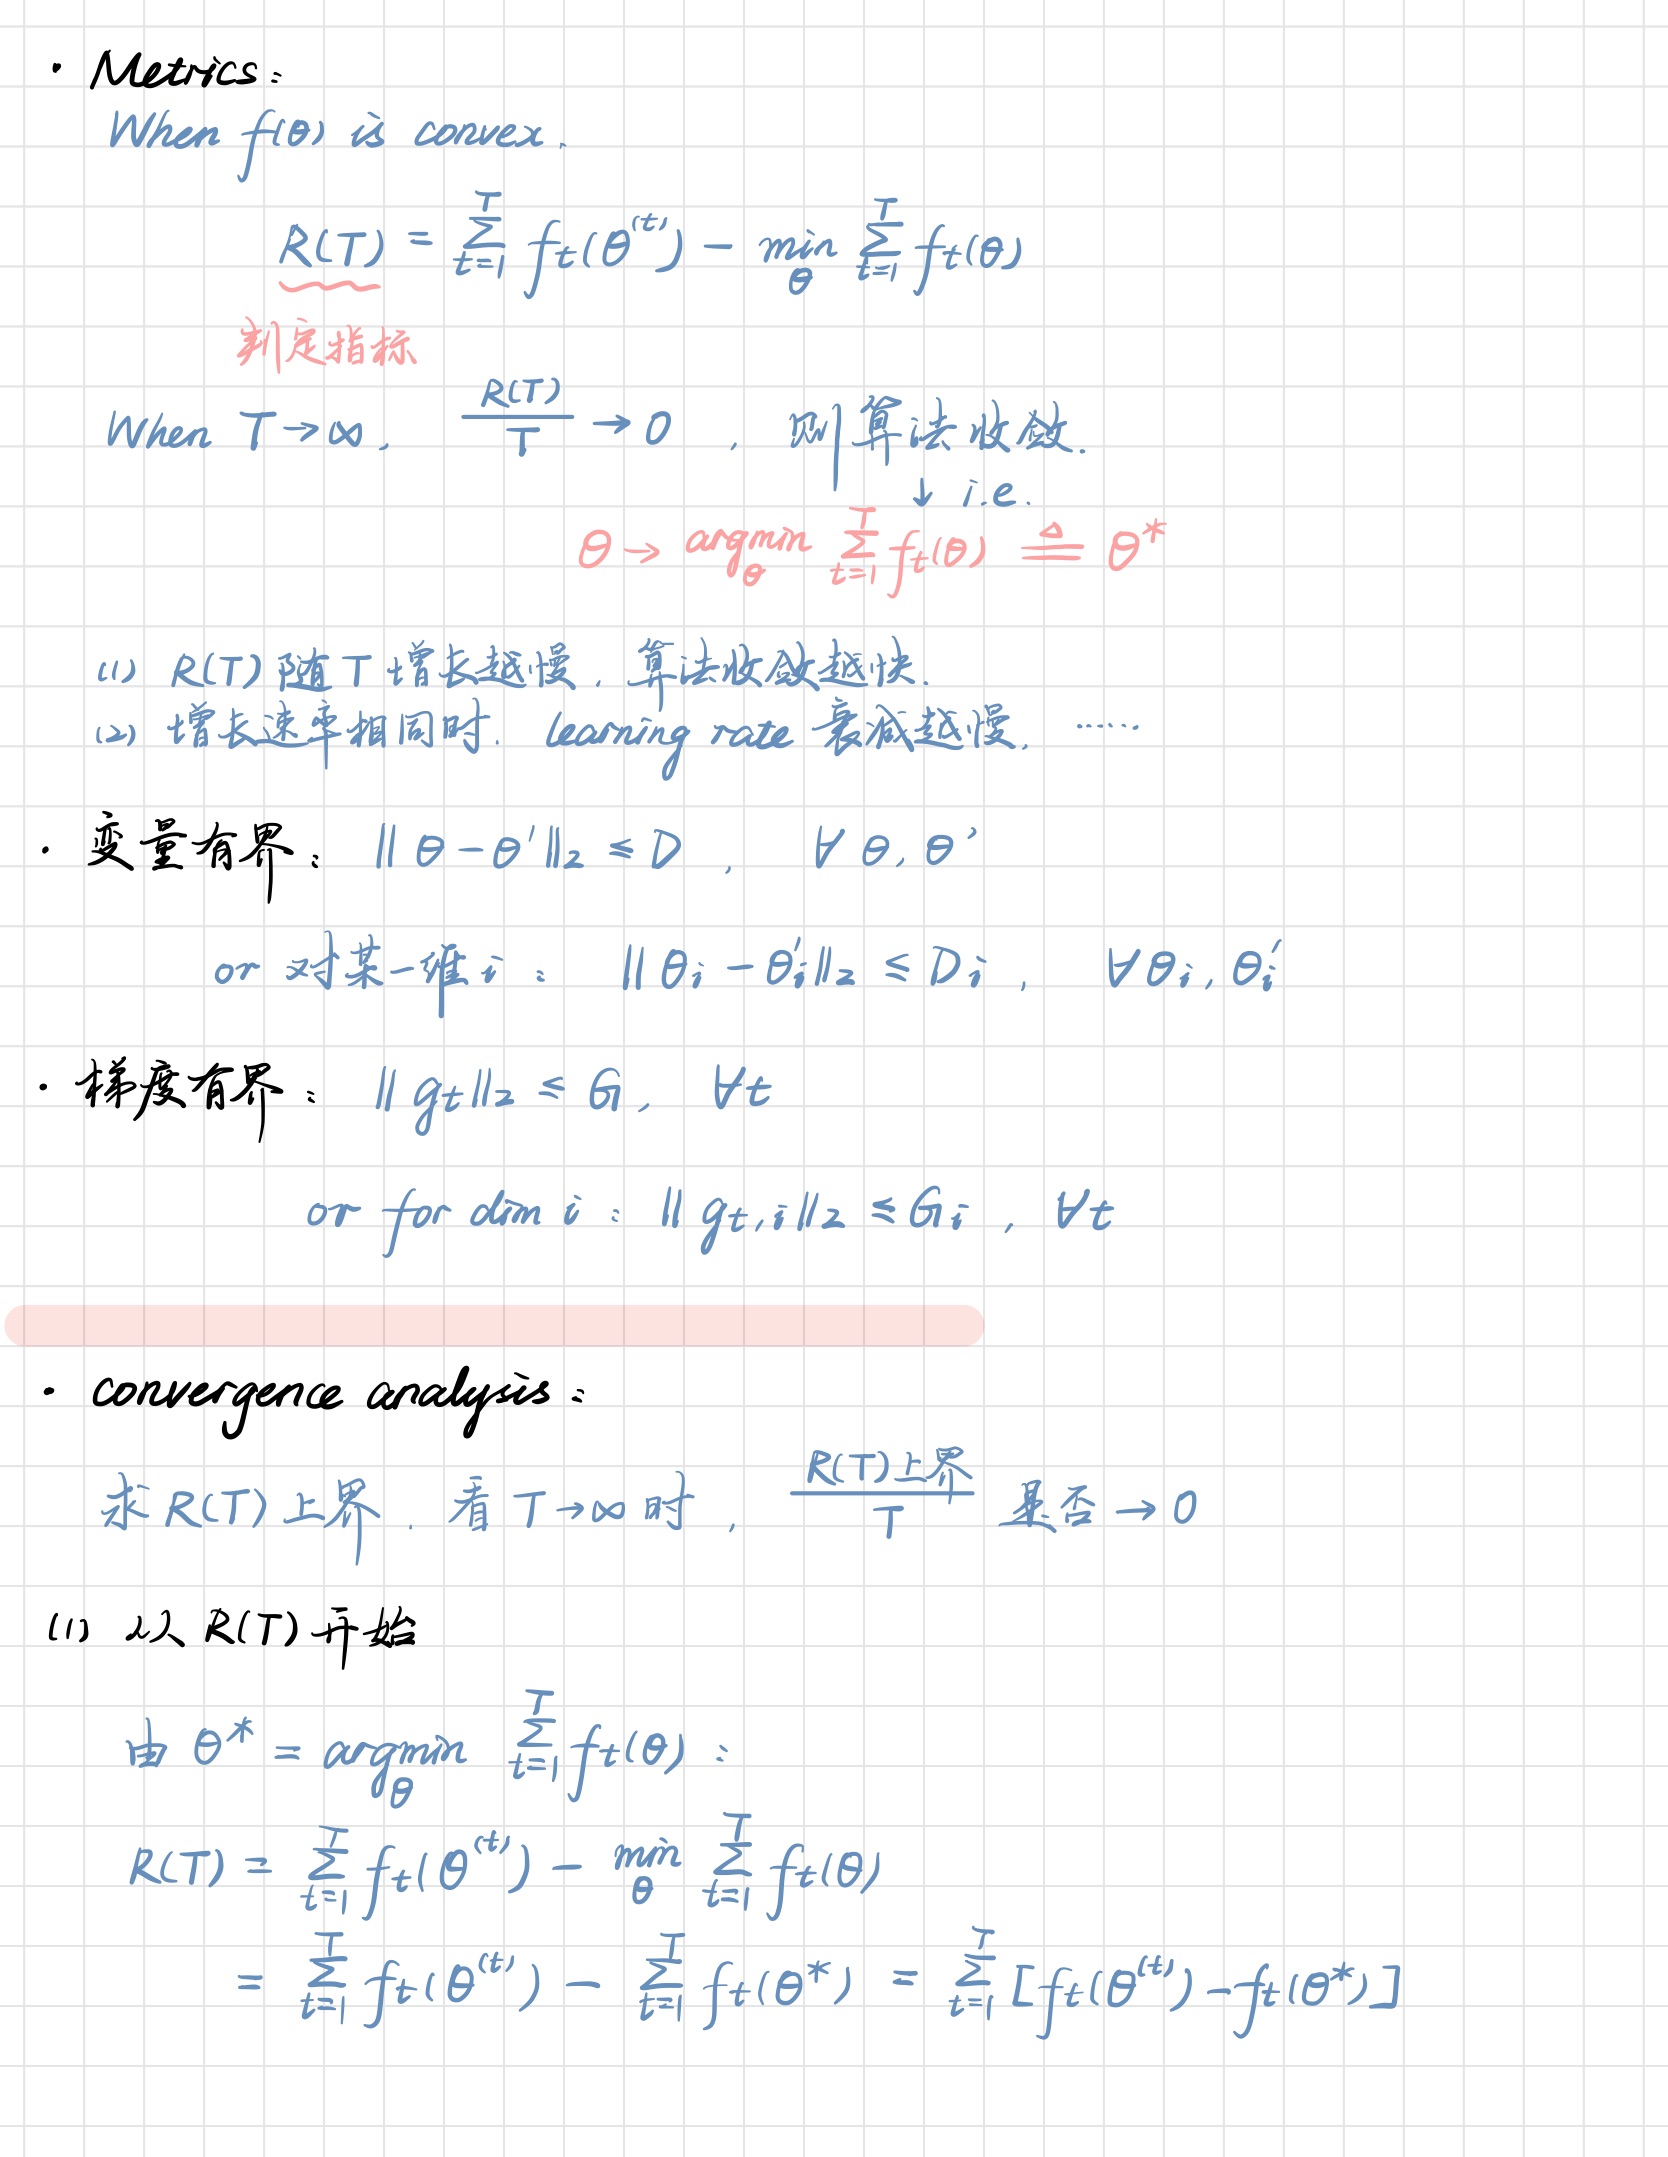 · Metrics:
When f(θ) is convex,
R(T) = \sum_{t=1}^{T} f_t(θ^{(t)}) - \min_θ \sum_{t=1}^{T} f_t(θ)
判定指标
When T→∞, \frac{R(T)}{T} → 0 , 则算法收敛.
↓ i.e.
θ → argmin_θ \sum_{t=1}^{T} f_t(θ) ≜ θ^*
(1) R(T)随T增长越慢, 算法收敛越快.
(2) 增长速率相同时, learning rate 衰减越慢, ……
· 变量有界: ‖θ-θ'‖_2 ≤ D , ∀ θ, θ'
or 对某一维i: ‖θ_i - θ_i'‖_2 ≤ D_i , ∀θ_i, θ_i'
· 梯度有界: ‖g_t‖_2 ≤ G, ∀t
or for dim i: ‖g_{t,i}‖_2 ≤ G_i , ∀t
· convergence analysis:
求R(T)上界, 看T→∞时, \frac{R(T)上界}{T} 是否→0
(1) 以R(T)开始
由 θ^* = argmin_θ \sum_{t=1}^{T} f_t(θ) :
R(T) = \sum_{t=1}^{T} f_t(θ^{(t)}) - \min_θ \sum_{t=1}^{T} f_t(θ)
= \sum_{t=1}^{T} f_t(θ^{(t)}) - \sum_{t=1}^{T} f_t(θ^*) = \sum_{t=1}^{T} [f_t(θ^{(t)}) - f_t(θ^*)]